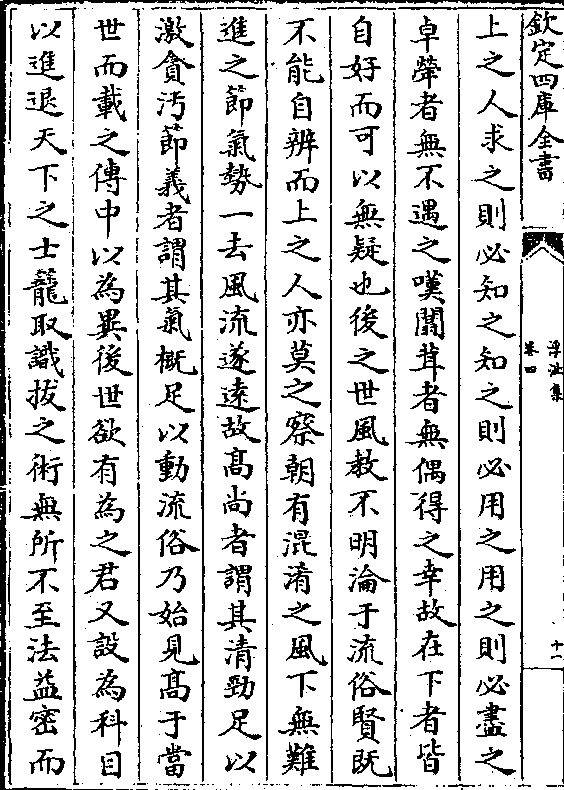 欽定四庫全書
浮沚集
卷四
十一
上之人求之則必知之知之則必用之用之則必盡之
卓犖者無不遇之嘆闒茸者無偶得之幸故在下者皆
自好而可以無疑也後之世風教不明淪于流俗賢既
不能自辨而上之人亦莫之察朝有混淆之風下無難
進之節氣勢一去風流遂逺故髙尚者謂其清勁足以
激貪汚節義者謂其氣概足以動流俗乃始見髙于當
世而載之傳中以為異後世欲有為之君又設為科目
以進退天下之士籠取識拔之術無所不至法益密而